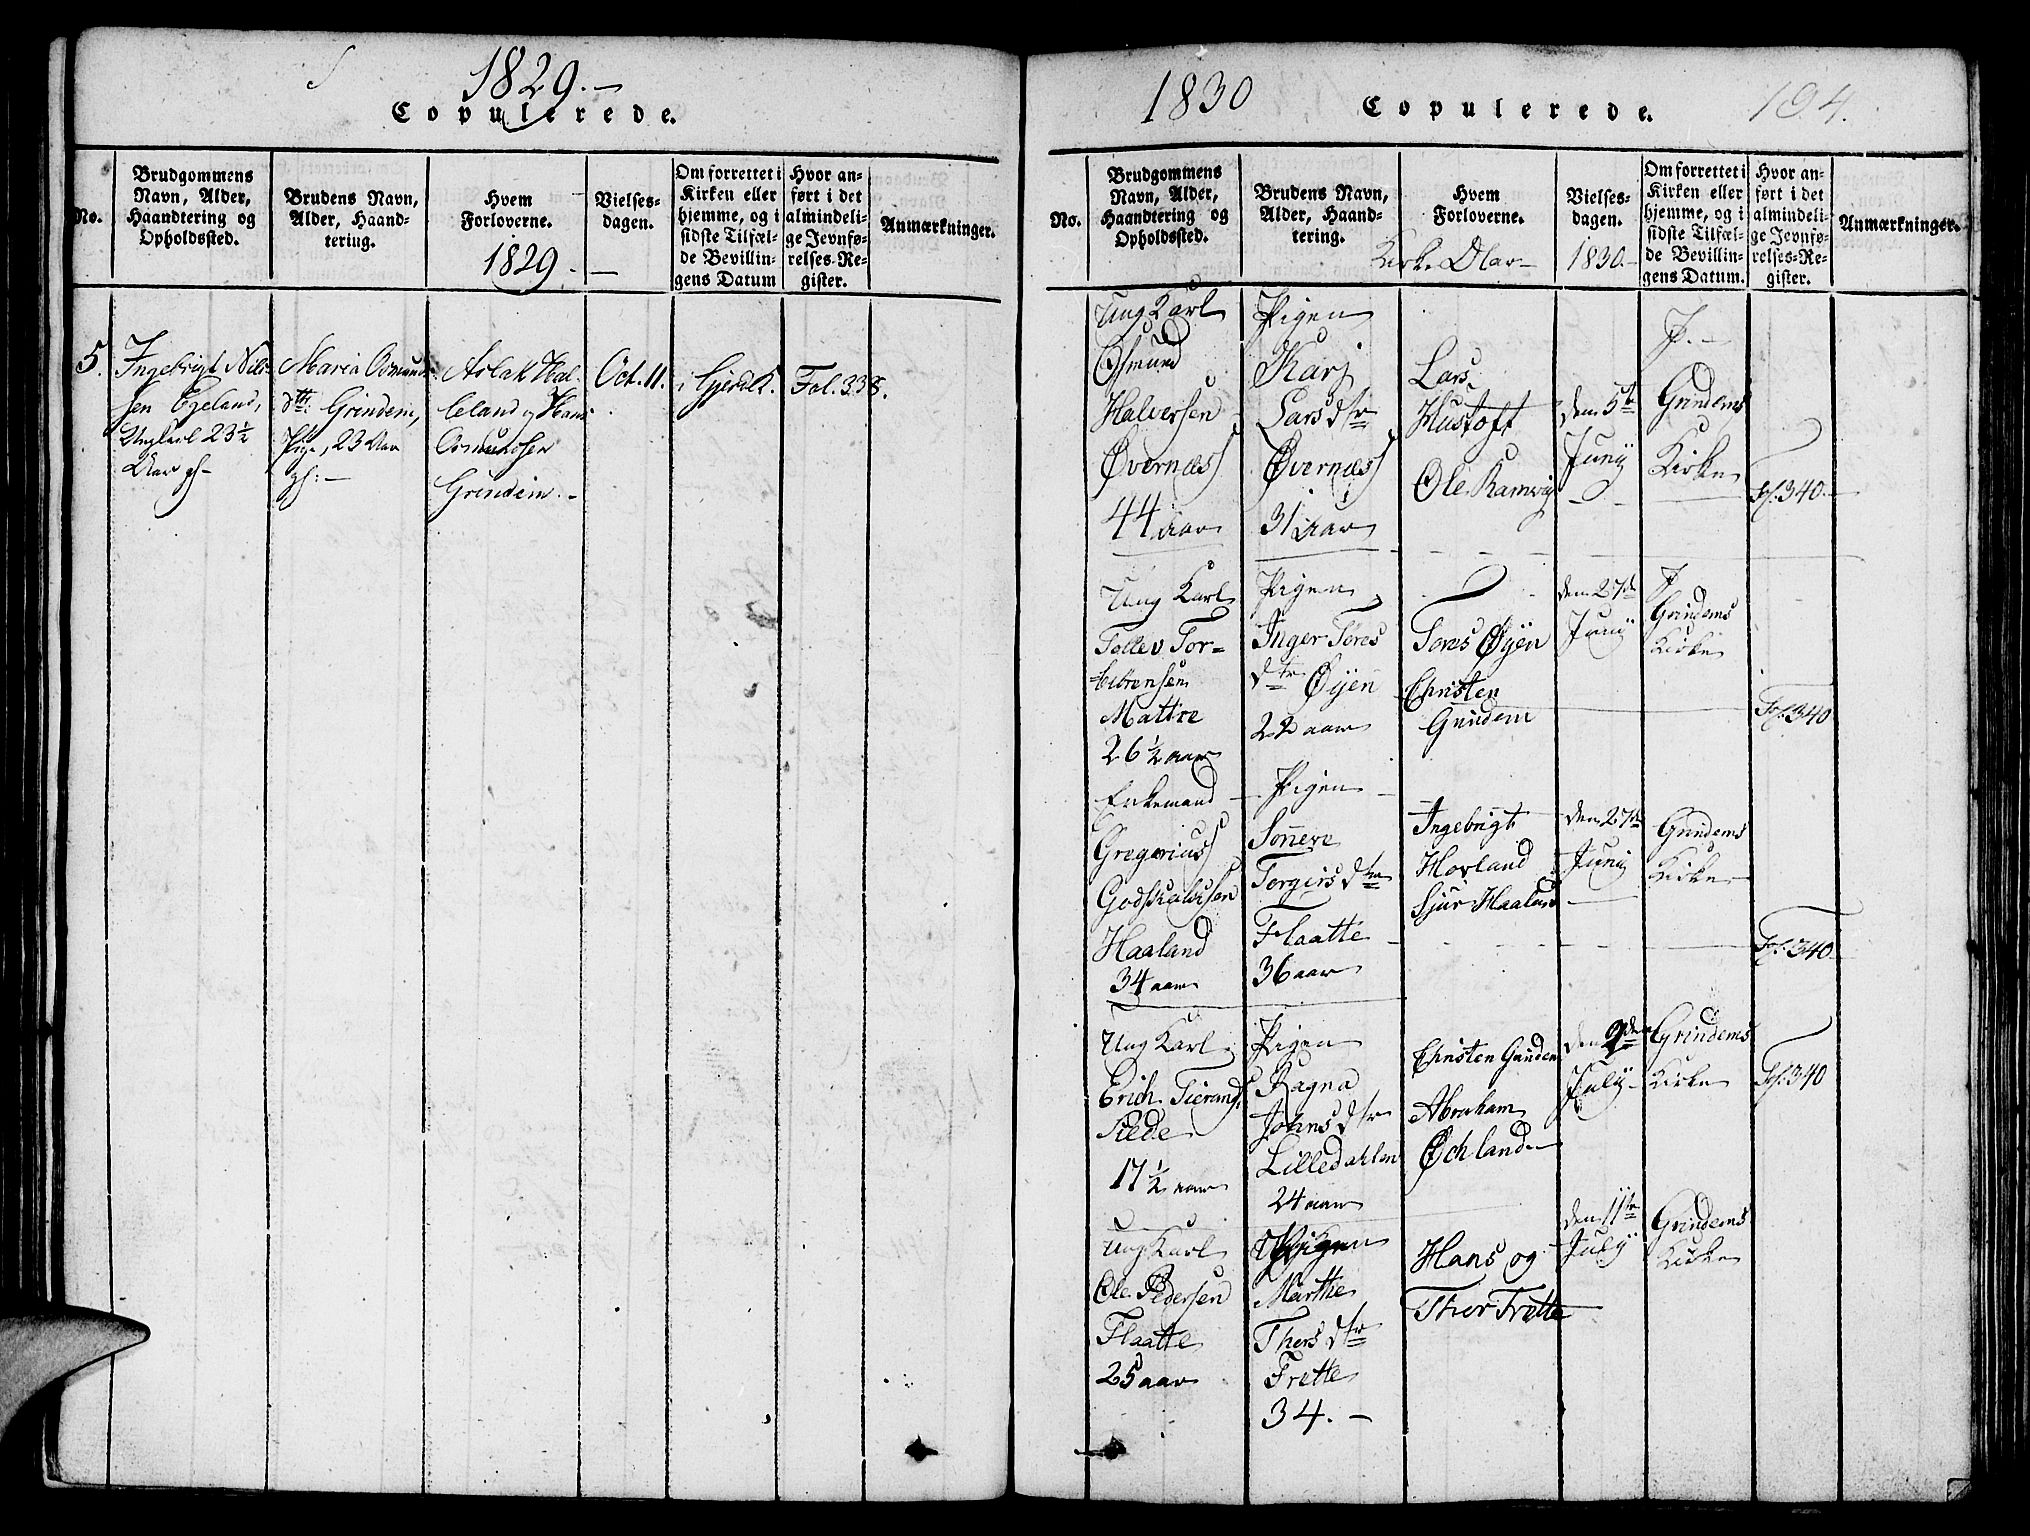 1829.-
Copulerede.
No.
Brudgommens Navn, Alder, Haandtering og Opholdssted.
Brudens Navn, Alder, Haandtering.
Hvem Forloverne.
1829.
Vielsesdagen.
Om forrettet i Kirken eller hjemme, og i sidste Tilfælde Bevillingens Datum
Hvor anført i det almindelige Jevnførelses-Register.
Anmærkninger.
5.
Ingebrigt Nilssen Egeland,
Ungkarl 23½
Aar gl
Maria Osmunds
dtr: Grindem,
Pige, 23 Aar
gl: -
Aslak Hal-
leland og Hans
Osmundsen
Grindem. -
Oct. 11.
i Gjerds K.
Fol. 338.
1830
Copulerede.
194.
No.
Brudgommens Navn, Alder, Haandtering og Opholdssted.
Brudens Navn, Alder, Haandtering.
Hvem Forloverne.
Vielsesdagen.
1830.-
Om forrettet i Kirken eller hjemme, og i sidste Tilfælde Bevillingens Datum.
Hvor anført i det almindelige Jevnførelses-Register.
Anmærkninger.
Ung Karl
Osmund
Halversen
Øvernæs
44 aar
Pigen
Karj
Lars dtr
Øvernæs
31 aar
Lars
Hustoft
Ole Ramvig
den 5te
Junij
I. -
Grindems
Kirke
Fol. 340.
Ung Karl
Tollev Tor-
Mattre
26½ aar
Pigen
Inger Tores
dtr Øÿen
22 aar
Tores Øÿen
Christen
Grindem
den 27de
Junij
I
Grindems
Kirke
Fol. 340
Enkemand
Gregorius
Godskalksen
Haaland
34 aar
Pigen
Sønneve
Torgiers dtr
Flaatte
36 aar
Ingebrigt
Hovland
Sjur Haaland
den 27de
Junij
Grindems
Kirke
Fol. 340
Ung Karl
Erich Tierands
Silde
17½ aar
Pigen
Ragna
Johns dtr
Lilledahlen
24 aar
Christen Grindem
Abraham
Øchland
den 2den
Julÿ
Grindems
Kirke
Fol. 340
Ung Karl
Ole Pedersen
Flaatte
25 aar
Pigen
Marthe
Thors dtr
Frette
34. -
Hans og
Thor Frette
den 11te
Julÿ
Grindems
Kirke